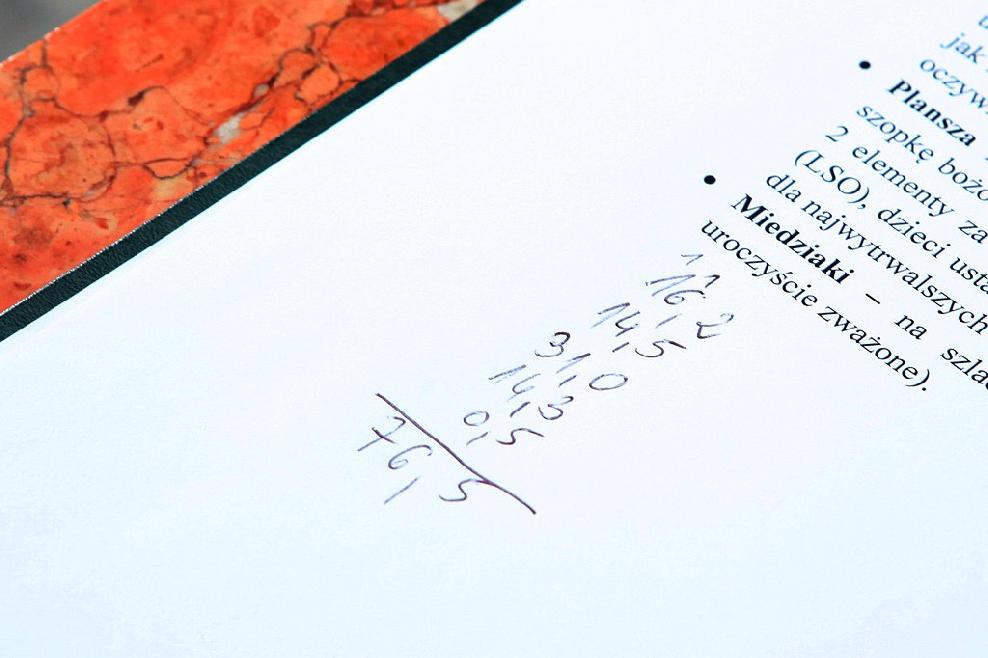 jak
oczyw
• Plansza
szopkę bożo
2 elementy za
(LSO), dzieci usta
dla najwytrwalszych
• Miedziaki – na szla
uroczyście zważone).
1 1
16,2
14,5
31,0
14,3
0,5
76,5